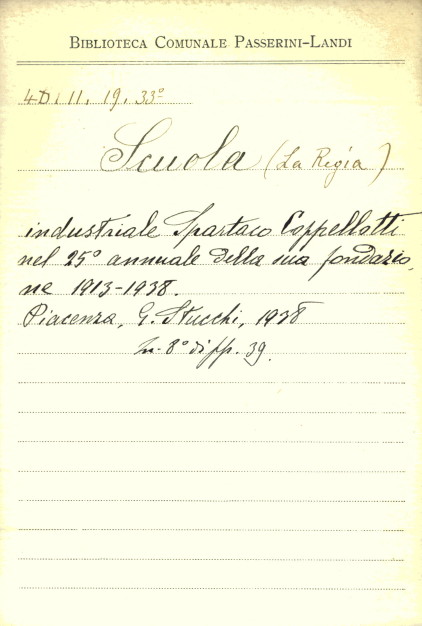 BIBLIOTECA COMUNALE PASSERINI-LANDI
4D. 11. 19. 33º
Scuola (La Regia)
industriale Spartaco Coppellotti
nel 25º annuale della sua fondazio,
ne 1913-1938.
Piacenza, G. Stucchi, 1938
In-8º di pp. 39.